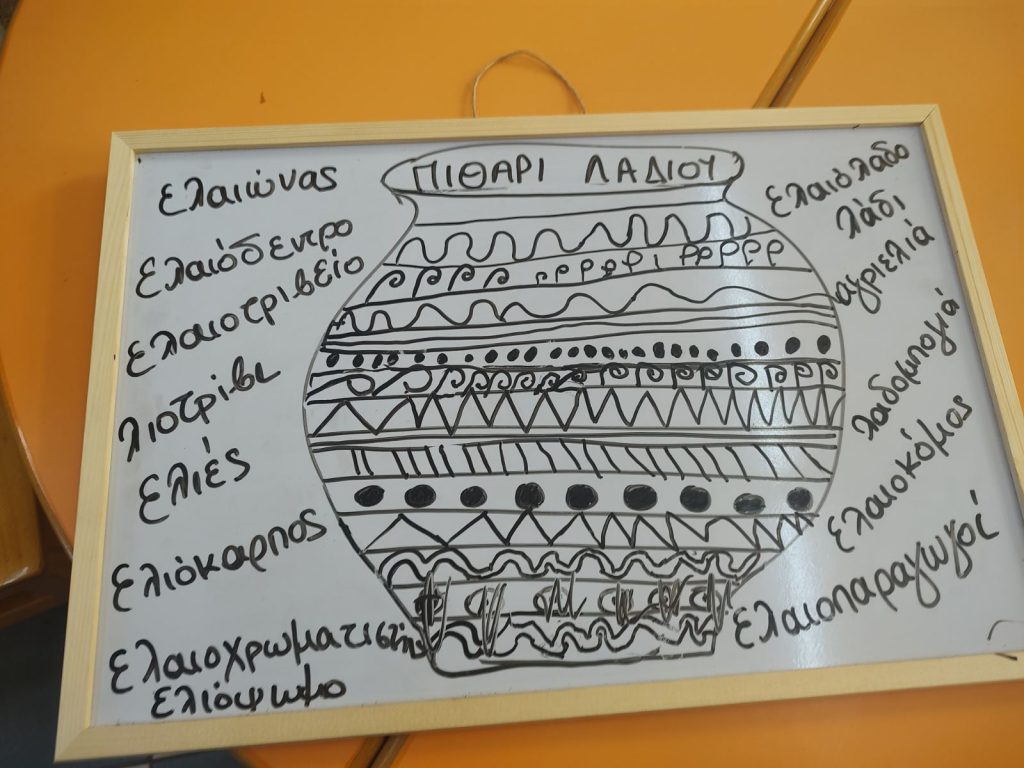 ΠΙΘΑΡΙ ΛΑΔΙΟΥ
ελαιώνας
ελαιόδεντρο
ελαιοτριβείο
λιοτρίβι
ελιές
ελιόκαρπος
ελαιοχρωματιστής
ελιόψωμο
ελαιόλαδο
λάδι
αγριελιά
λαδομπογιά
ελαιοκόμος
ελαιοπαραγωγοί